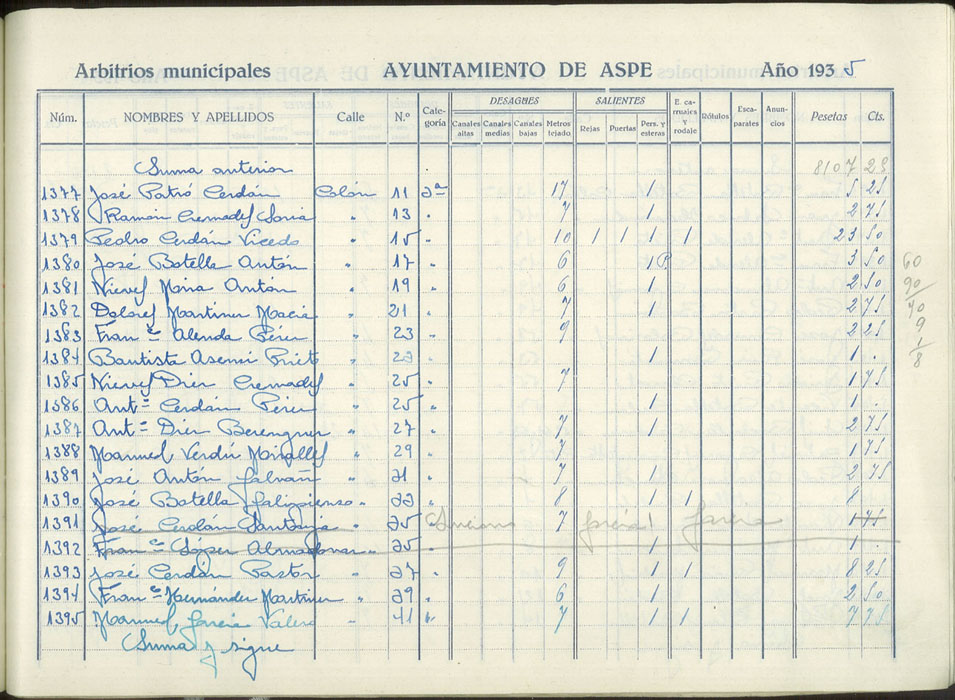 Arbitrios municipales AYUNTAMIENTO DE ASPE Año 1935
Núm. NOMBRES Y APELLIDOS Calle N.º Categoría DESAGUES Canales altas Canales medias Canales bajas Metros tejado SALIENTES Rejas Puertas Pers. y esteras E. carruajes y rodaje Rótulos Escaparates Anuncios Pesetas Cts.
Suma anterior 8107 25
1377 José Patró Cerdán Colón 11 2ª 17 1 5 25
1378 Ramón Cremades Soria " 13 " 7 1 2 75
1379 Pedro Cerdán Vicedo " 15 " 10 1 1 1 1 23 50
1380 José Botella Antón " 17 " 6 1 P 3 50
1381 Nieves Mira Anton " 19 " 6 1 2 50
1382 Dolores Martinez Maciá " 21 " 7 1 2 75
1383 Franco Alenda Pérez " 23 " 9 2 25
1384 Bautista Asensi Prieto " 23 " 1 1 "
1385 Nieves Diez Cremades " 25 " 7 1 75
1386 Antº Cerdán Pérez " 25 " 1 1 "
1387 Antº Diez Berenguer " 27 " 7 1 2 75
1388 Manuel Verdú Miralles " 29 " 7 1 75
1389 José Antón Galvañ " 31 " 7 1 2 75
1390 José Botella " 33 " 8 1 1 8
1391 José Cerdán Santana " 35 Luciano 7 García 1 García 1 75
1392 Franco López Almodovar " 35 " 1 1 "
1393 José Cerdán Pastor " 37 " 9 1 1 8 25
1394 Franco Hernández Martinez " 39 " 6 1 2 50
1395 Manuel García Valero " 41 " 7 1 1 7 75
Suma y sigue
60
90
40
9
1
8